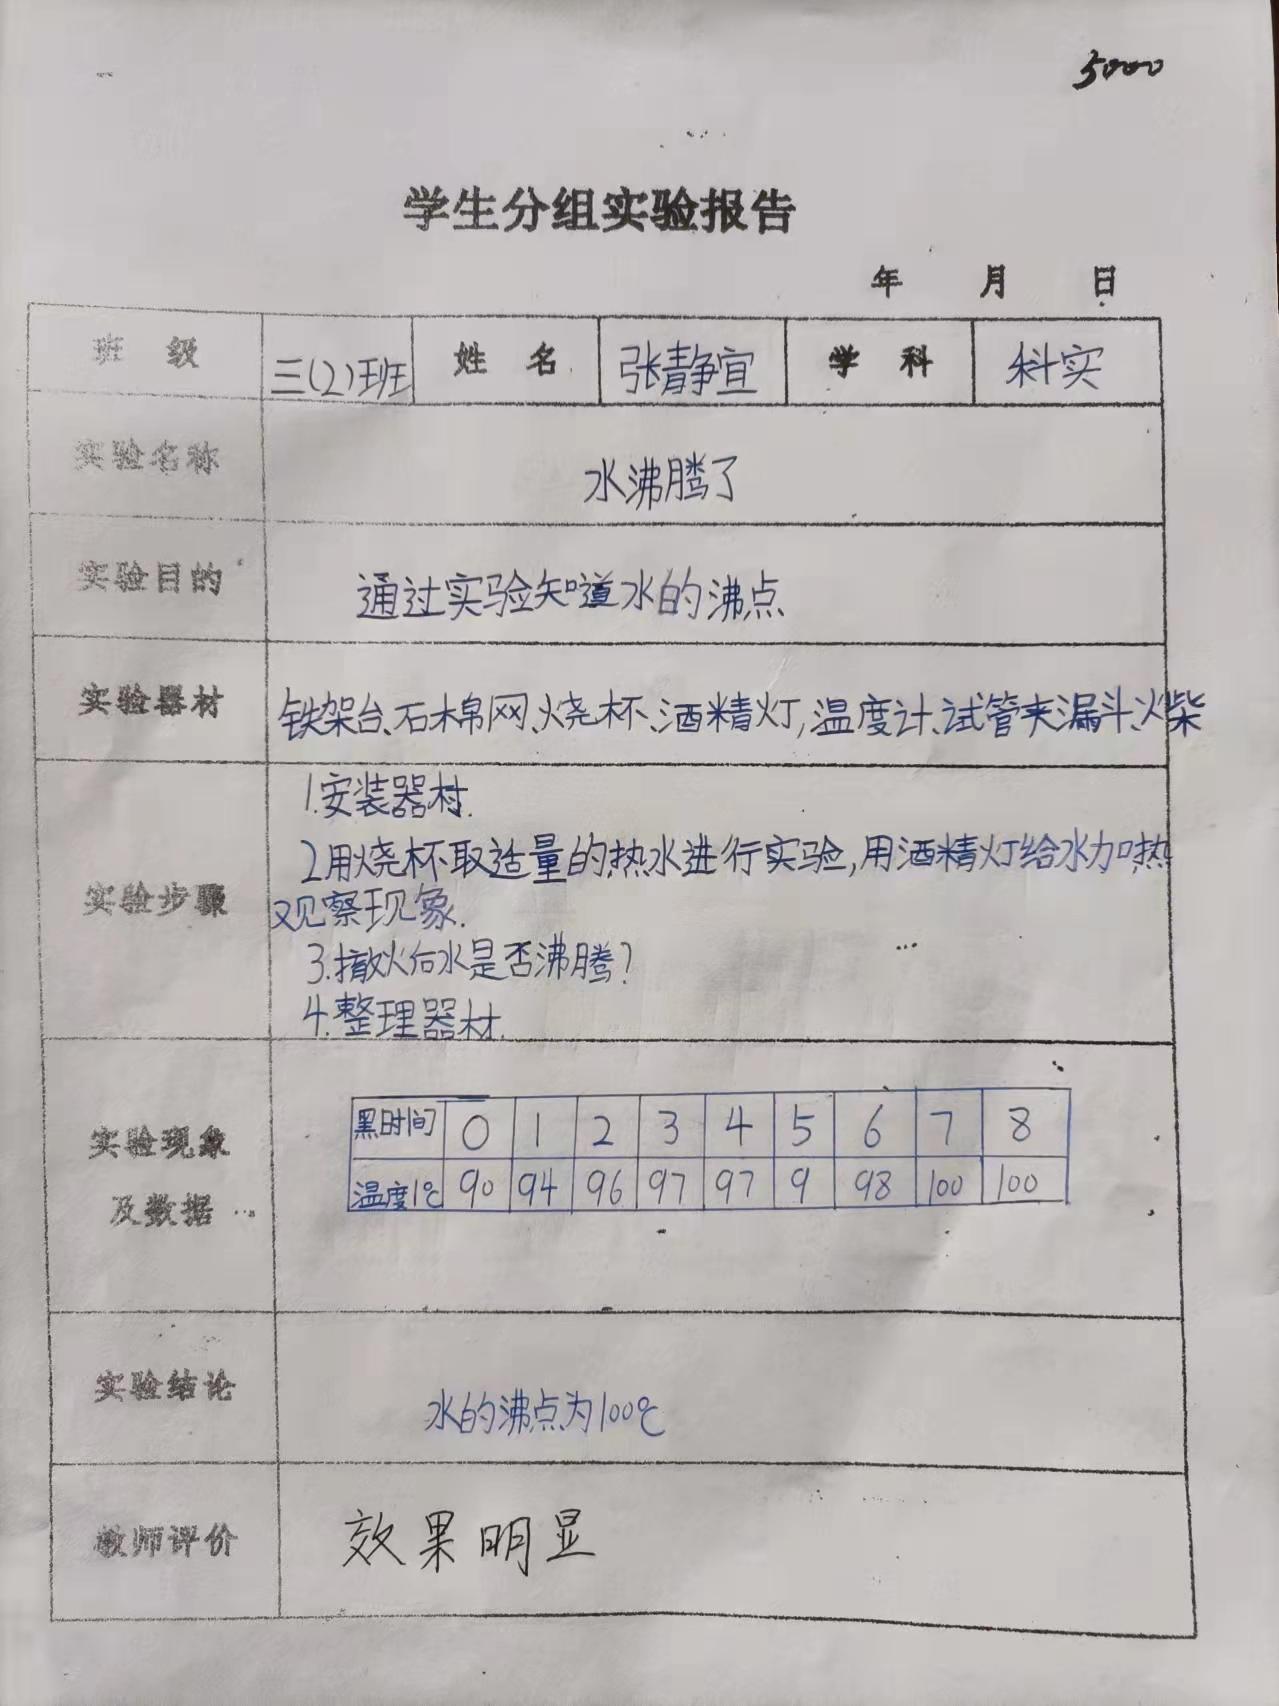 5000
学生分组实验报告
年 月 日
班 级 三(2)班 姓 名 张静宜 学 科 科实
实验名称 水沸腾了
实验目的 通过实验知道水的沸点
实验器材 铁架台、石棉网、烧杯、酒精灯,温度计、试管夹漏斗、火柴
实验步骤
1.安装器材.
2.用烧杯取适量的热水进行实验,用酒精灯给水加热
观察现象.
3.撤火后水是否沸腾?
4.整理器材.
实验现象
及数据
黑时间 0 1 2 3 4 5 6 7 8
温度1℃ 90 94 96 97 97 9 98 100 100
实验结论 水的沸点为100℃
教师评价 效果明显